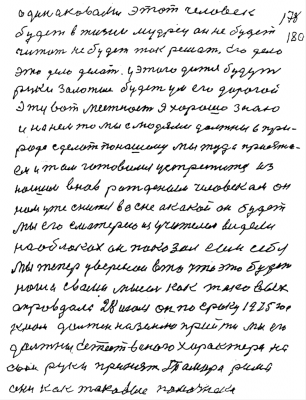 одинаковами этот человек
будет в жизни мудрец он не будет 178
читат не будет так решат. Его дело 180
это дело делат. у этого дитя будут
руки золотые будет ум его дорогой
Эти вот местност я хорошо знаю
и на нем то мы с людями должны в при-
роде сделат по нашому мы туда приеха-
ем и там готовимся устретить из
нашим внов рождением человекам он
нам уже снится во сне какой он будет
мы его с матерею и учителя видели
на облоках он показал сам себя
мы тепер уверены в то, что это будет
наш а своим мыслей как таковых
оправдалс 28 июля он по сроку 1975 го-
жкам должен на землю прийти мы его
должны естественого характера на
свои руки принят. Тамара рима
они как таковые помозник